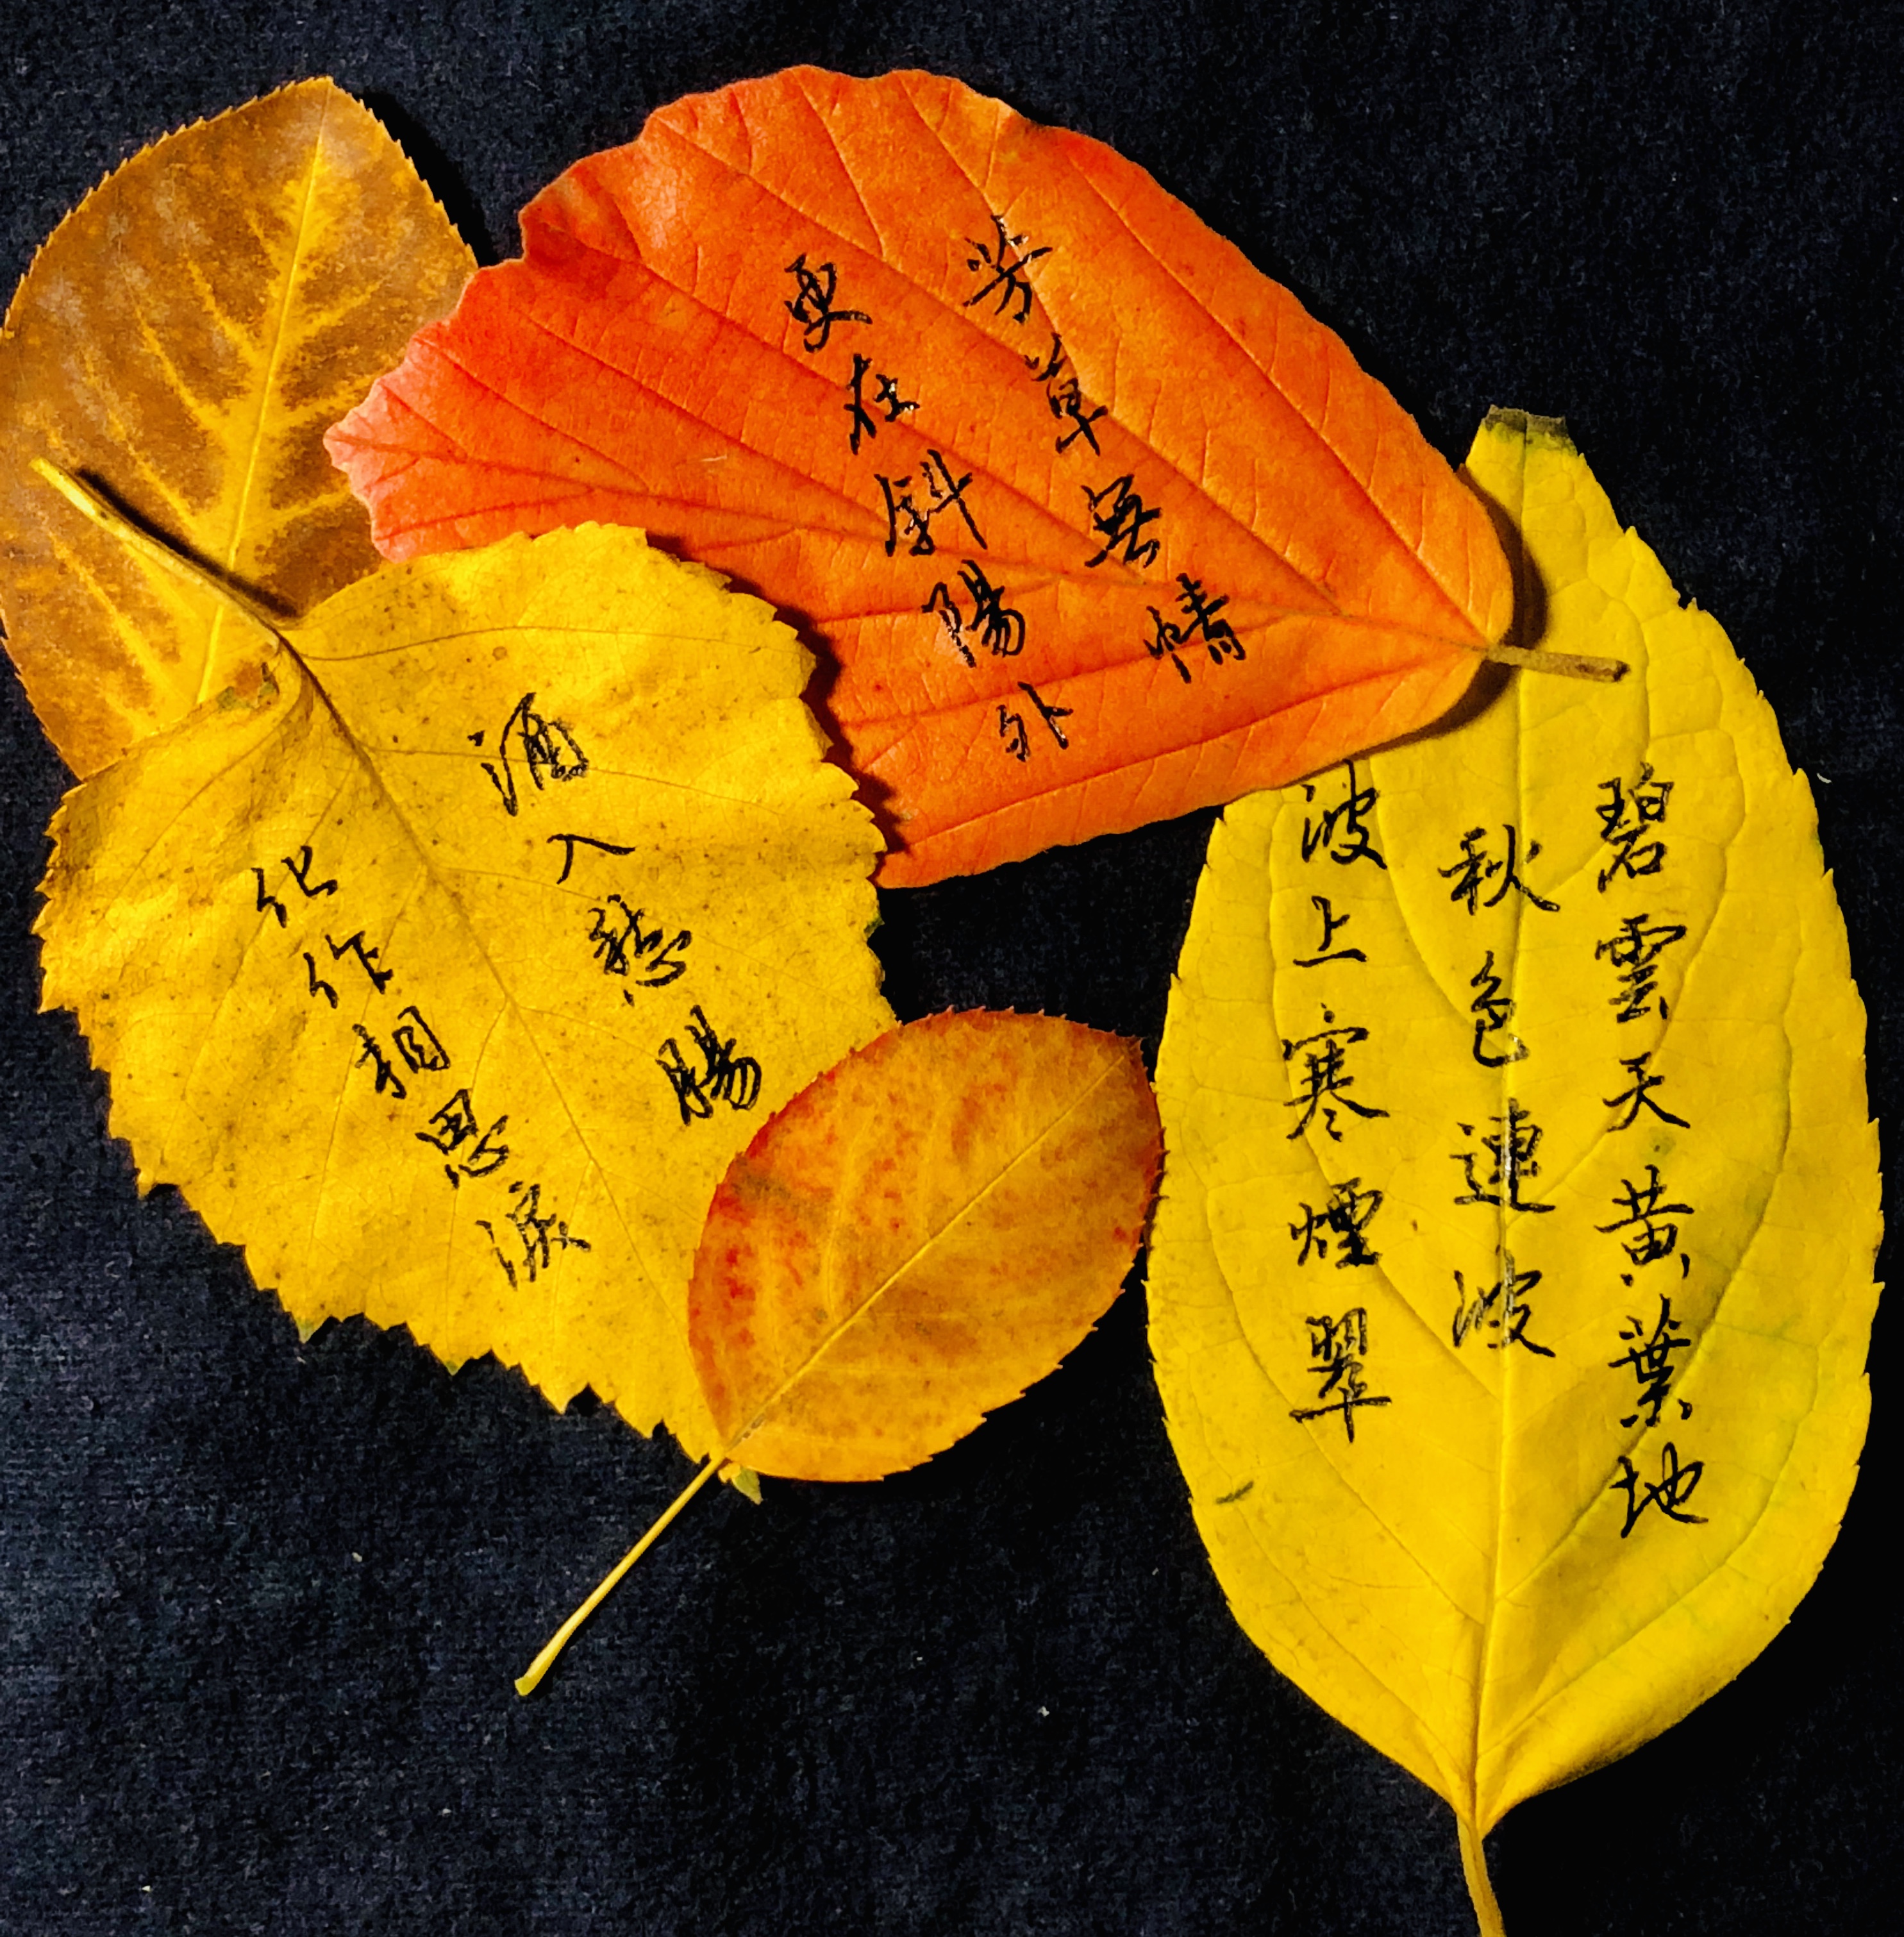 碧雲天黄葉地
秋色連波
波上寒煙翠
芳草無情
更在斜陽外
酒入愁腸
化作相思淚